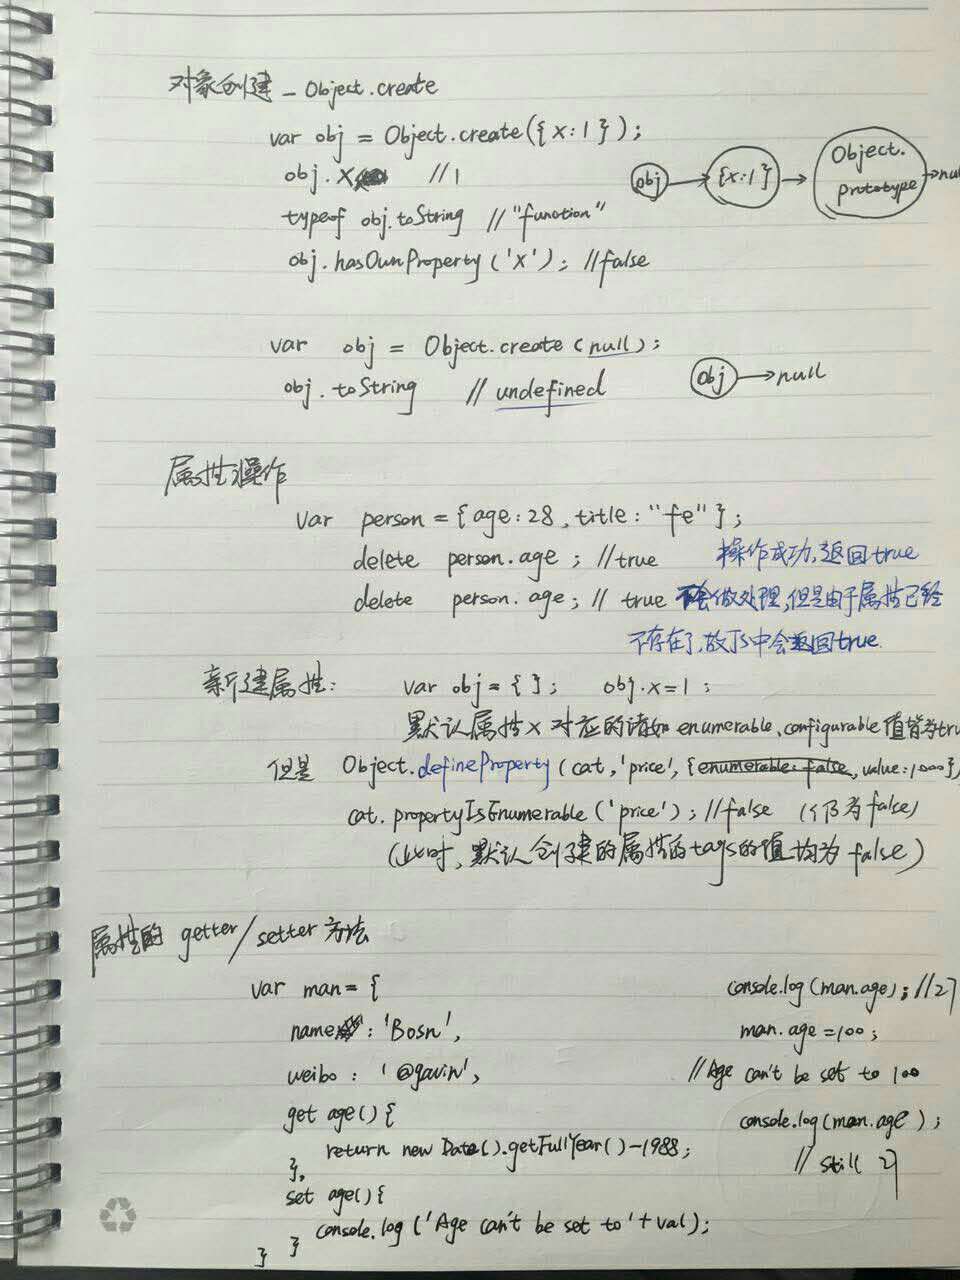 对象创建 - Object.create
var obj = Object.create({x:1});
obj.x //1
obj → {x:1} → Object.prototype → null
typeof obj.toString // "function"
obj.hasOwnProperty('x'); //false
var obj = Object.create(null);
obj.toString // undefined
obj → null
属性操作
var person = {age:28, title:"fe"};
delete person.age; //true 操作成功,返回true
delete person.age; // true 不会做处理,但是由于属性已经
不存在了,故JS中会返回true.
新建属性: var obj = {}; obj.x=1;
默认属性x对应的诸如enumerable、configurable值皆为tru
但是 Object.defineProperty(cat,'price',{enumerable: false, value:1000},
cat.propertyIsEnumerable('price'); //false (仍为false)
(此时,默认创建的属性的tags的值均为false)
属性的 getter/setter方法
var man = {
name: 'Bosn',
weibo: '@gavin',
get age(){
return new Date().getFullYear()-1988;
},
set age(){
console.log('Age can't be set to'+val);
}
}
console.log(man.age); //27
man.age=100;
//Age can't be set to 100
console.log(man.age);
// still 27